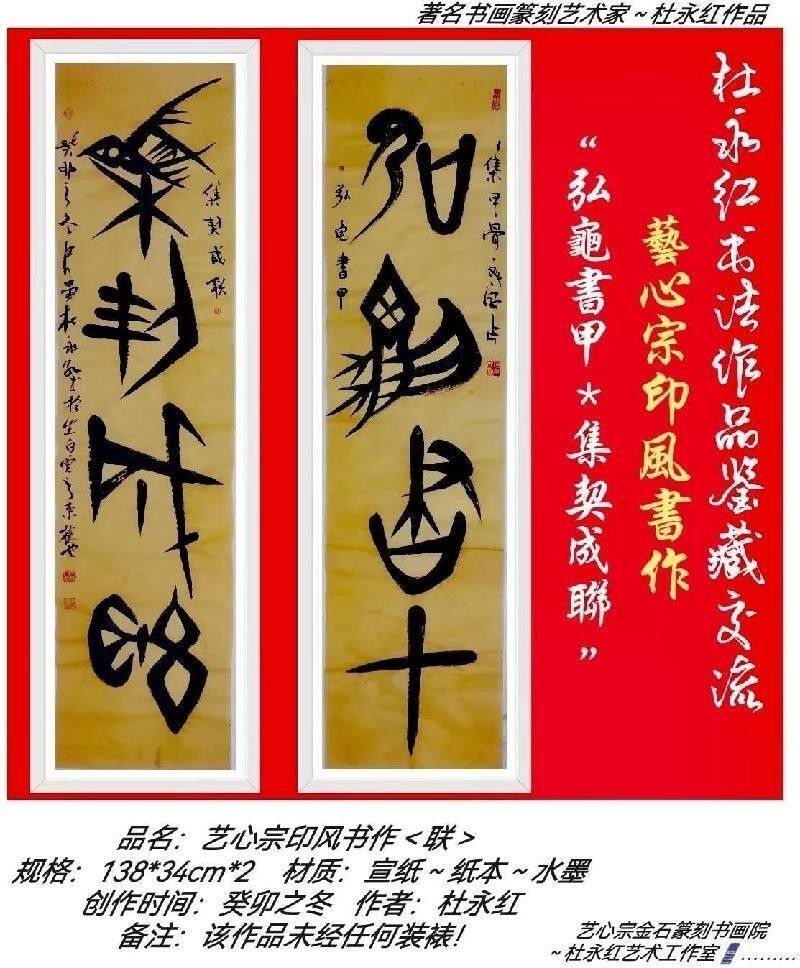 著名书画篆刻艺术家~杜永红作品
杜永红书法作品鉴藏交流
藝心宗印風書作
“弘龜書甲*集契成聯”
集甲骨
弘龟書甲
集契成联
品名：艺心宗印风书作<联>
规格：138*34cm*2 材质：宣纸~纸本~水墨
创作时间：癸卯之冬 作者：杜永红
备注：该作品未经任何装裱！
艺心宗金石篆刻书画院
~杜永红艺术工作室